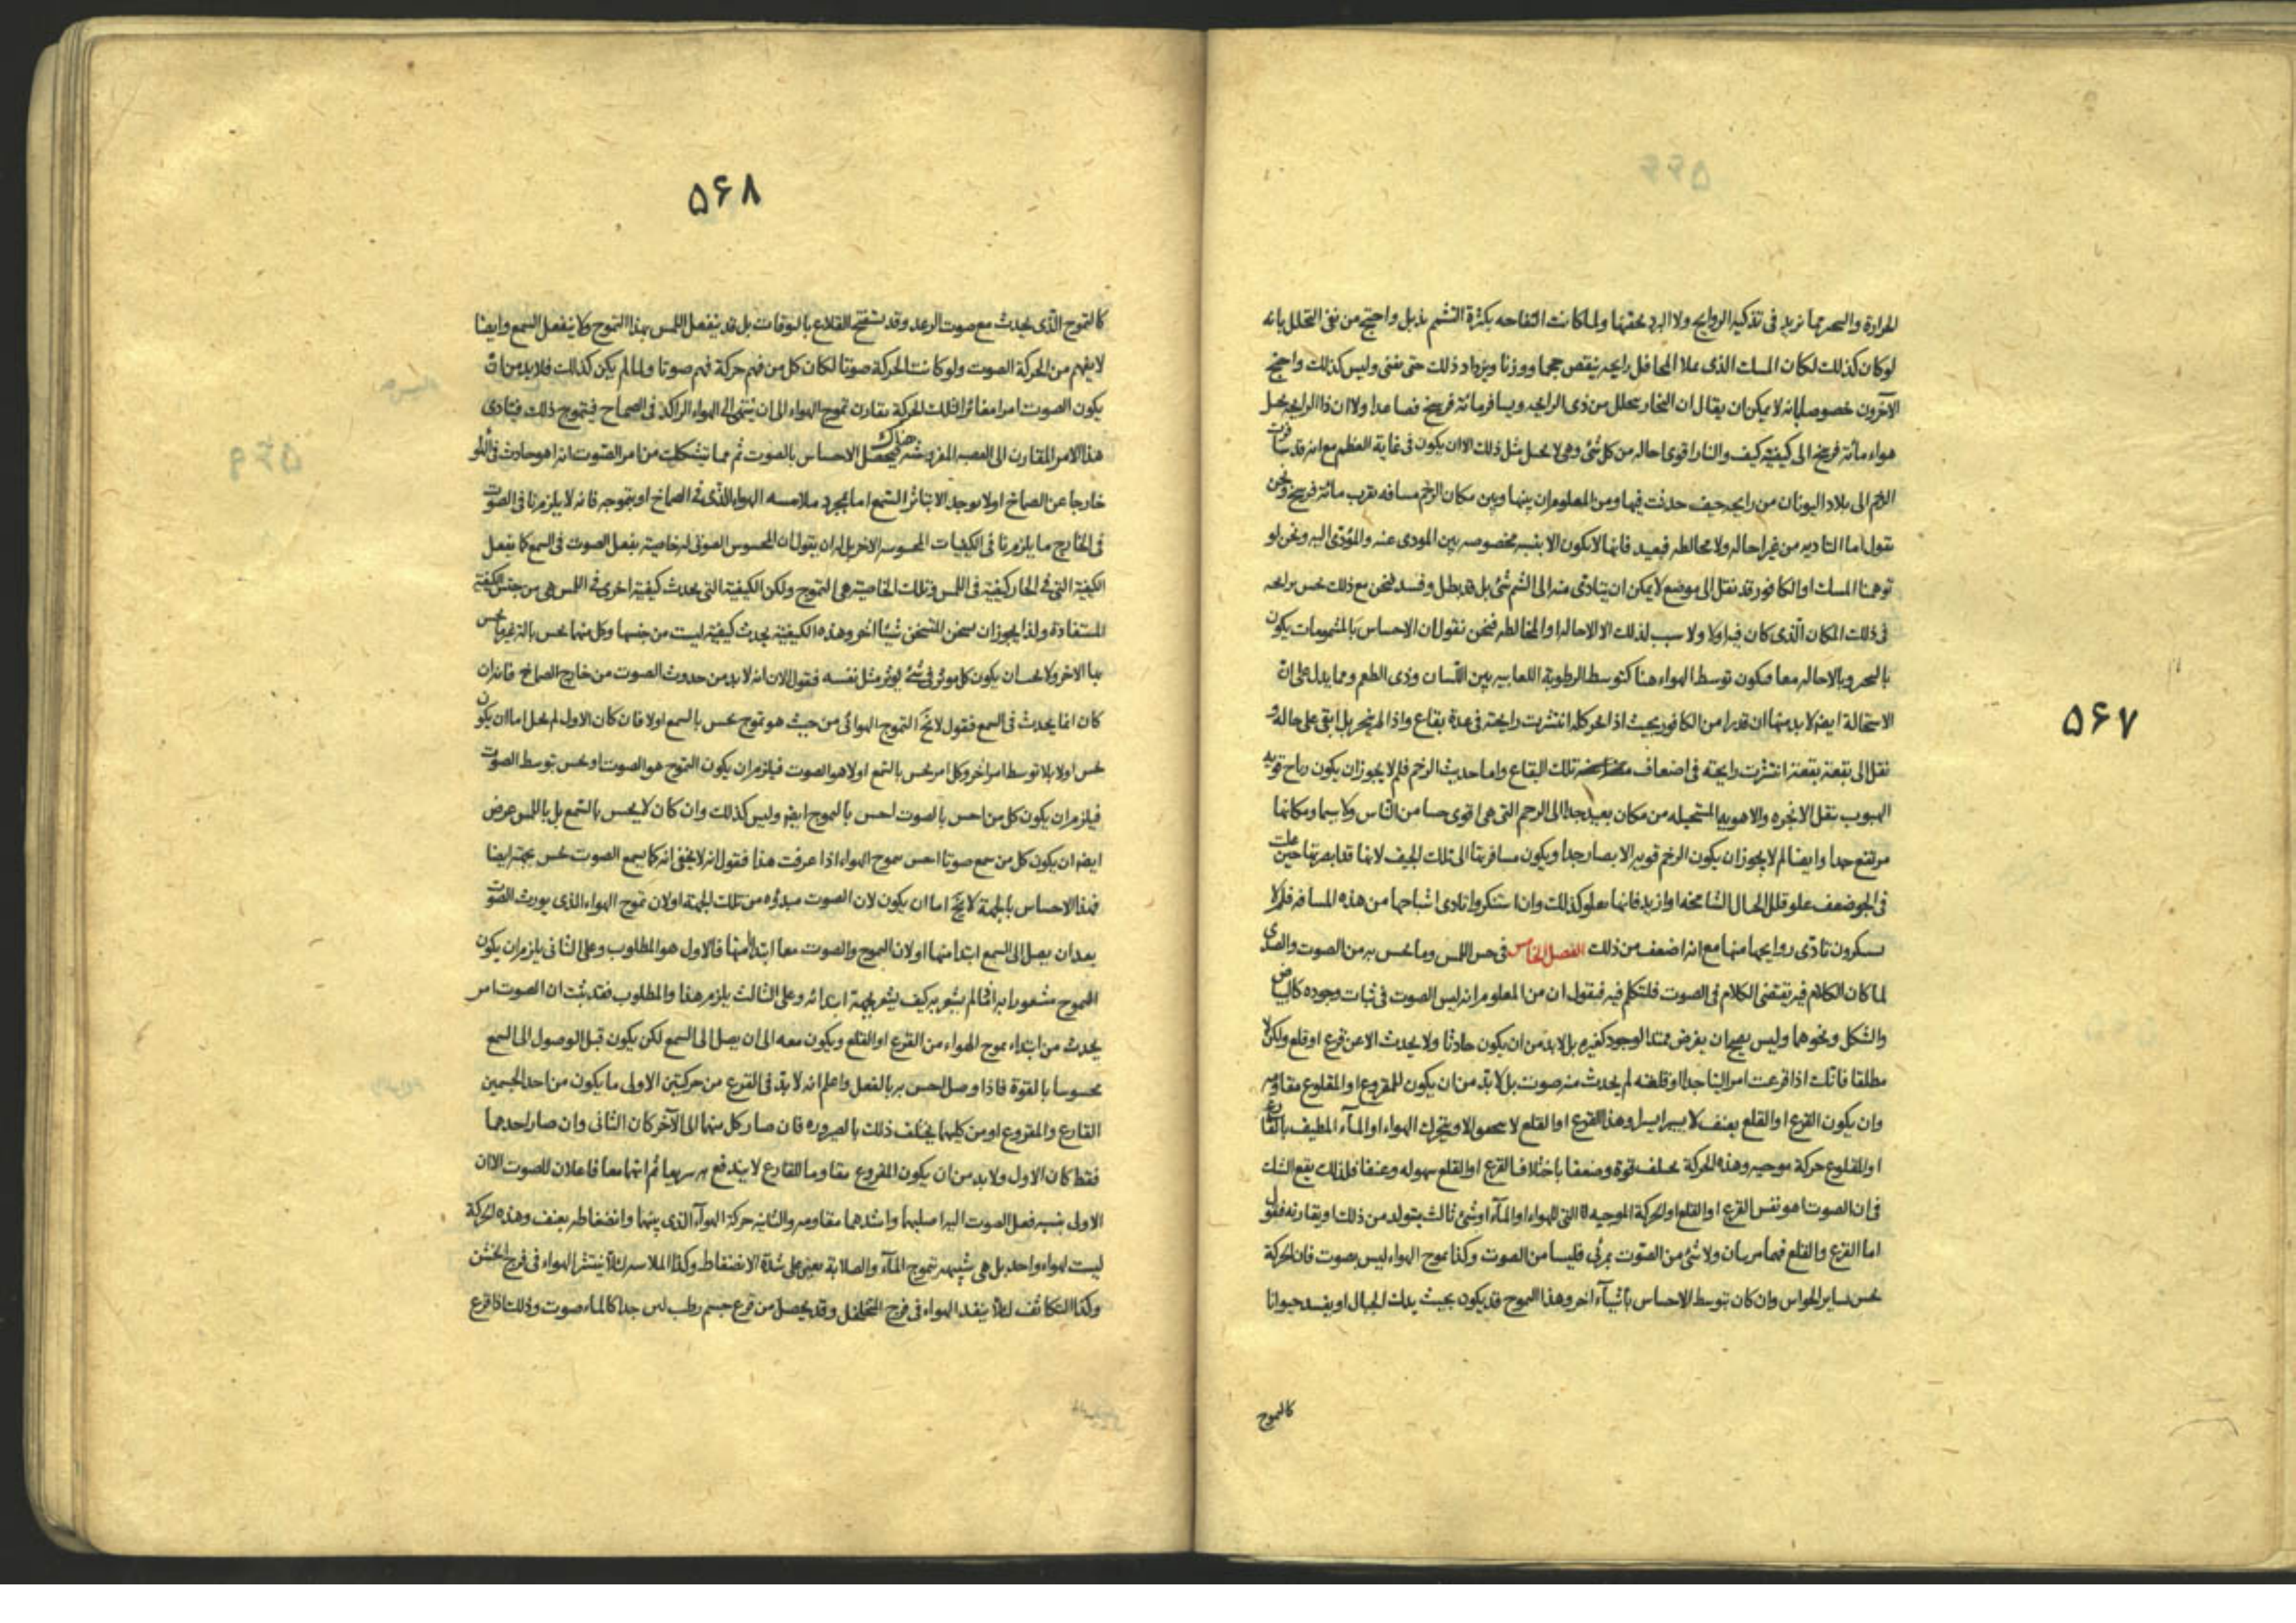 ۵۶۷
الحرارة والتبخير مما تزيد في تذكيه الروايح ولا البرد يخفيها ولما كانت التفاحه بكثرة التشمم تذبل واحتج من نفى التحلل بانه
لو كان كذلك لكان المسك الذي يملا المحافل رايحه ينقص حجما ووزنا ويزداد ذلك حتى يفنى وليس كذلك واحتج
الآخرون خصوصا بانه لا يمكن ان يقال ان البخار يتحلل من ذي الرايحه ويسافر مائة فرسخ فصاعدا ولا ان ذا الرايحه يحيل
هواء مائة فرسخ الى كيفيته كيف والنار اقوى احاله من كل شئ وهي لا تحيل مثل ذلك الا ان يكون في غاية العظم مع انه قد سافرت
الرخم الى بلاد اليونان من رايحه جيف حدثت فيها ومن المعلوم ان بينها وبين مكان الرخم مسافه تقرب مائة فرسخ ونحن
نقول اما التاديه من غير احاله ولا مخالطه فبعيد فانها لا تكون الا بنسبه مخصوصه بين المودى عنه والمؤدى اليه ونحن لو
توهمنا المسك او الكافور قد نقل الى موضع لا يمكن ان يتادى منه الى الشم شئ بل قد بطل وفسد فنحن مع ذلك نحس برايحه
في ذلك المكان الذي كان فيه اولا ولا سبب لذلك الا الاحاله او المخالطه فنحن نقول ان الاحساس بالمشمومات يكون
بالتبخر وبالاحاله معا فيكون توسط الهواء هنا كتوسط الرطوبة اللعابيه بين اللسان وذي الطعم ومما يدل على ان
الاستحالة ايضه لا بد منها ان قدرا من الكافور بحيث اذا بخر كله انتشرت رايحته في عدة بقاع واذا لم يتبخر بل ابقى على حاله و
نقل الى بقعة بقعة انتشرت رايحته في اضعاف تلك البقاع واما حديث الرخم فلم لا يجوز ان يكون رياح قويه
الهبوب تنقل الابخره والاهويه المستحيله من مكان بعيد جدا الى الرخم التي هي اقوى حسا من الناس ولا سيما ومكانها
مرتفع جدا وايضا لم لا يجوز ان يكون الرخم قويه الابصار جدا ويكون مسافرتها الى تلك الجيف لانها قد ابصرتها حين علت
في الجو ضعف علو قلل الجبال الشامخه او ازيد فانها تعلو كذلك وان استنكروا تادى اشباحها من هذه المسافه فلم لا
يستنكرون تادى روايحها منها مع انه اضعف من ذلك الفصل الخامس في حس اللمس وما يحس به من الصوت والصدى
لما كان الكلام فيه يقتضى الكلام في الصوت فلنتكلم فيه فنقول ان من المعلوم انه ليس الصوت في ثبات وجوده كالبياض
والشكل ونحوهما وليس يصح ان يفرض ممتد الوجود كغيره بل لا بد من ان يكون حادثا ولا يحدث الا عن قرع او قلع ولكن لا
مطلقا فانك اذا قرعت امرا لينا جدا او قلعته لم يحدث منه صوت بل لا بد من ان يكون للمقروع او المقلوع مقاومه
وان يكون القرع او القلع بعنف لا يسيرا يسيرا وهذا القرع او القلع لا يتحقق الا ويتحرك الهواء او الماء المطيف بالقارع
او المقلوع حركة موجيه وهذه الحركة تختلف قوة وضعفا باختلاف القرع او القلع سهوله وعنفا فلذلك يقع الشك
في ان الصوت اهو نفس القرع او القلع او الحركة الموجيه التي للهواء او الماء او شئ ثالث يتولد من ذلك او يقارنه فنقول
اما القرع والقلع فهما مرئيان ولا شئ من الصوت بمرئى فليسا من الصوت وكذا تموج الهواء ليس بصوت فان الحركة
تحس بساير الحواس وان كان بتوسط الاحساس باشياء اخر وهذا التموج قد يكون بحيث يدك الجبال او يفسد حيوانا
كالتموج
۵۶۸
كالتموج الذي يحدث مع صوت الرعد وقد تستفتح القلاع بالبوقات بل قد ينفعل اللمس بهذا التموج ولا ينفعل السمع وايضا
لا يفهم من الحركة الصوت ولو كانت الحركة صوتا لكان كل من فهم حركة فهم صوتا ولما لم يكن كذلك فلا بد من ان
يكون الصوت امرا مغائرا لتلك الحركة يقارن تموج الهواء الى ان ينتهى الى الهواء الراكد في الصماخ فيتموج ذلك فيتادى
هذا الامر المقارن الى العصبه المفروشه هناك فيحصل الاحساس بالصوت ثم مما يتشكك من امر الصوت انه اهو حادث في الخارج
خارجا عن الصماخ اولا يوجد الا بتاثر السمع اما بمجرد ملامسه الهواء الذي في الصماخ او بتموجه فانه لا يلزمنا في الصوت
في الخارج ما يلزمنا في الكيفيات المحسوسه الاخر بل له ان يقول ان المحسوس الصوتى له خاصيته يفعل الصوت في السمع كما يفعل
الكيفية التي في الحار كيفية في اللمس وتلك الخاصية هي التموج ولكن الكيفية التي يحدث كيفية اخرى في اللمس هي من جنس الكيفية
المستفادة ولذا يجوز ان يسخن المتسخن شيئا اخر وهذه الكيفية يحدث كيفية ليست من جنسها وكل منهما يحس بالة غير ما يحس
بها الاخر ولا يحسان يكون كل موثر في شئ يوثر مثل نفسه فنقول الان انه لا بد من حدوث الصوت من خارج الصماخ فانه ان
كان انما يحدث في السمع فنقول لا يخ التموج الهوائى من حيث هو تموج يحس بالسمع اولا فان كان الاول لم يخل اما ان يكون
يحس اولا بلا توسط امر اخر وكل امر يحس بالسمع اولا هو الصوت فيلزم ان يكون التموج هو الصوت او يحس بتوسط الصوت
فيلزم ان يكون كل من احس بالصوت احس بالتموج ايضه وليس كذلك وان كان لا يحس بالسمع بل باللمس عرض
ايضه ان يكون كل من سمع صوتا احس بتموج الهواء اذا عرفت هذا فنقول انه لا يخفى انه كما يسمع الصوت يحس بجهته ايضا
فهذا الاحساس بالجهة لا يخ اما ان يكون لان الصوت مبدؤه من تلك الجهة او لان تموج الهواء الذي يورث الصوت
بعد ان يصل الى السمع ابتدا منها او لان التموج والصوت معا ابتدا منها فالاول هو المطلوب وعلى الثاني يلزم ان يكون
التموج مشعورا به اذ ما لم يشعر به كيف يشعر بجهة ابتدائه وعلى الثالث يلزم هذا والمطلوب فقد ثبت ان الصوت امر
يحدث من ابتداء تموج الهواء من القرع او القلع ويكون معه الى ان يصل الى السمع لكن يكون قبل الوصول الى السمع
محسوسا بالقوة فاذا وصل احس به بالفعل واعلم انه لا بد في القرع من حركتين الاولى ما يكون من احد الجسمين
القارع والمقروع او من كليهما يختلف ذلك بالصيروره فان صار كل منهما الى الآخر كان الثاني وان صار احدهما
فقط كان الاول ولا بد من ان يكون المقروع مقاوما للقارع لا يندفع به سريعا ثم انهما معا فاعلان للصوت الا ان
الاولى بنسبه فعل الصوت اليه اصلبهما واشدهما مقاومه والثانيه حركة الهواء الذي بينهما وانضغاطه بعنف وهذه الحركة
ليست لهواء واحد بل هي شبيهه بتموج الماء والصلابة تعين على شدة الانضغاط وكذا الملاسه لئلا ينتشر الهواء في فرج الخشن
وكذا التكاثف لئلا ينفد الهواء في فرج المتخلخل وقد يحصل من قرع جسم رطب لين جدا كالماء صوت وذلك اذا قرع